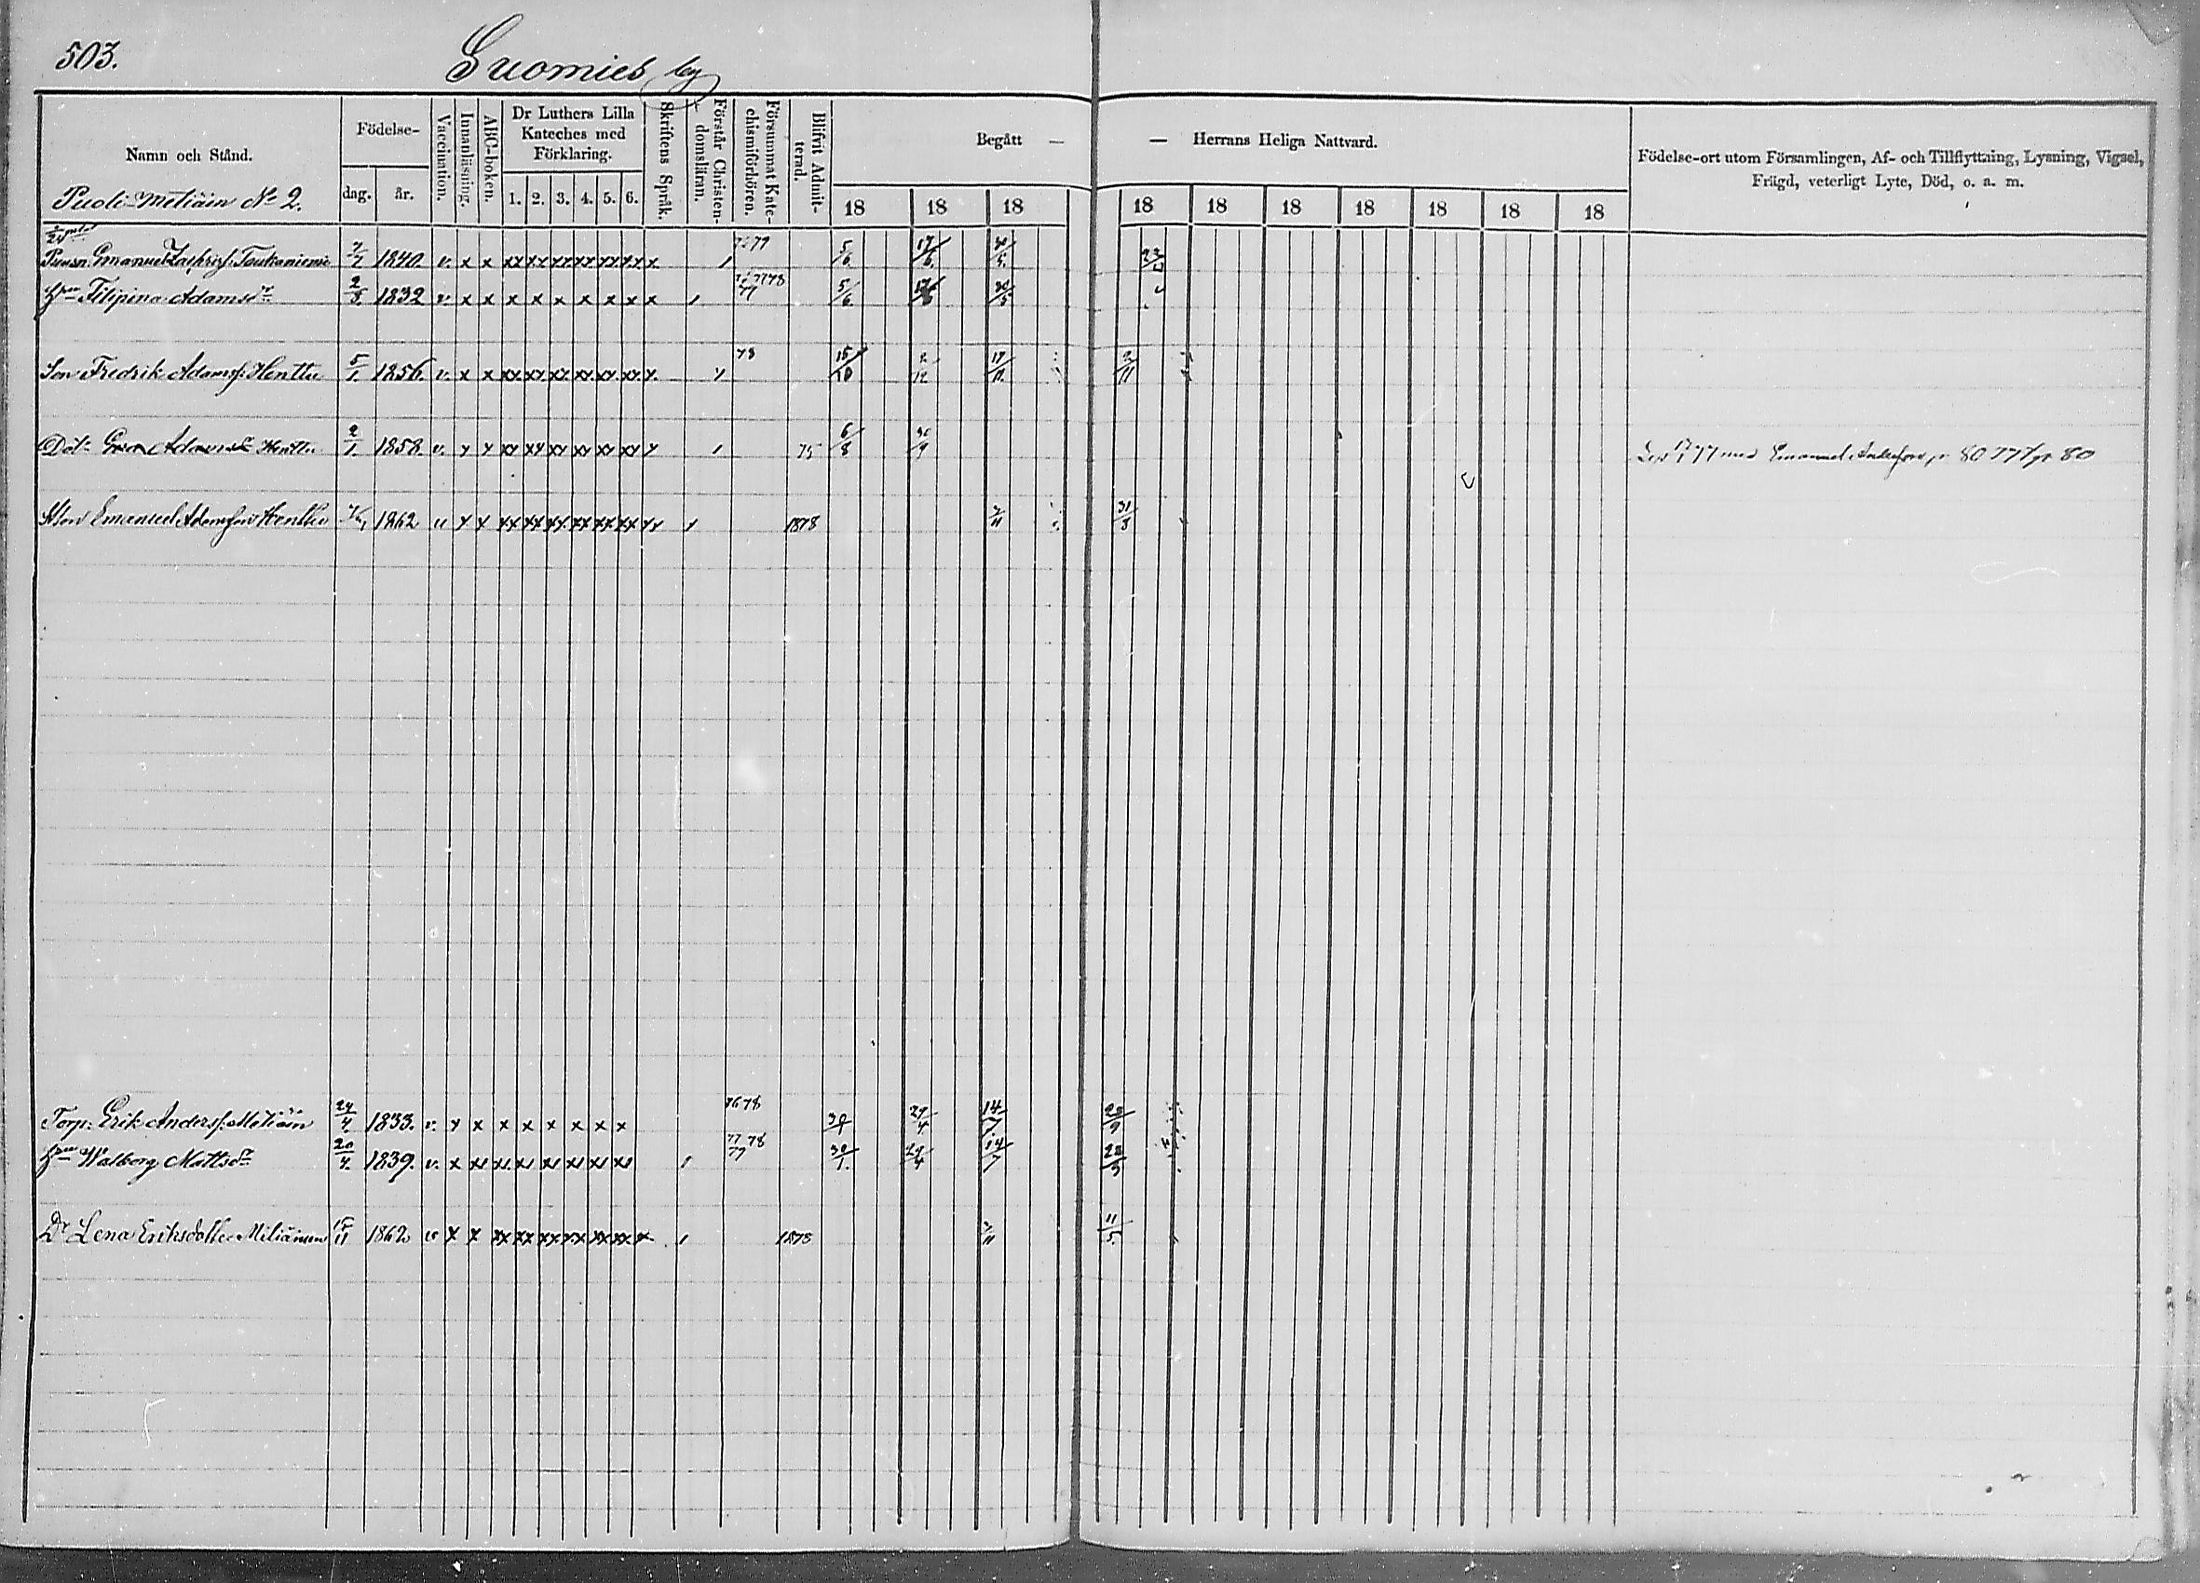 503. Suomies by
Namn och Stånd.
Födelse-
dag. år.
Vaccination.
Innanläsning.
ABC-boken.
Dr Luthers Lilla
Kateches med
Förklaring.
1. 2. 3. 4. 5. 6.
Skriftens Språk.
Förstår Christen-
domsläran.
Försummat Kate-
chismiförhören.
Blifvit Admit-
terad.
Begått — — Herrans Heliga Nattvard.
18 18 18 18 18 18 18 18 18 18
Födelse-ort utom Församlingen, Af- och Tillflyttning, Lysning, Vigsel,
Frägd, veterligt Lyte, Död, o. a. m.
Puoli-Metiäin No 2.
Emanuel Zachrisf. Taukaniemi 1840. v. x x xx xx xx xx xx xx x 5/6 17/6 30/5
Filipina Adamsdr 2/3 1832 v. x x x x x x x x x 5/6 30/5
78
Son Fredrik Adamsf. Henttu 5/1. 1856. v. x x xx xx xx xx xx xx x. 15/10 2/12 17/11 2/11
Dotr Adamsdr Henttu 2/1. 1858. v. x x xx xx xx xx xx xx x 75 6/8 30/9 77 med Emanuel 80
Son Emanuel Adamsson Henttu 1862 v x x xx xx xx xx xx xx xx 1878 31/8
76 78
Torp: Erik Andersf. Metiäin 24/4. 1833. v. x x x x x x x x 29/4 14/7 20/9
77 78
Walborg Mattsdr 20/4. 1839. v. 77 30/1. 29/4 14/7
Dr Lena Eriksdotter 15/11 1862 v x x xx xx xx xx xx xx x 1878 11/5